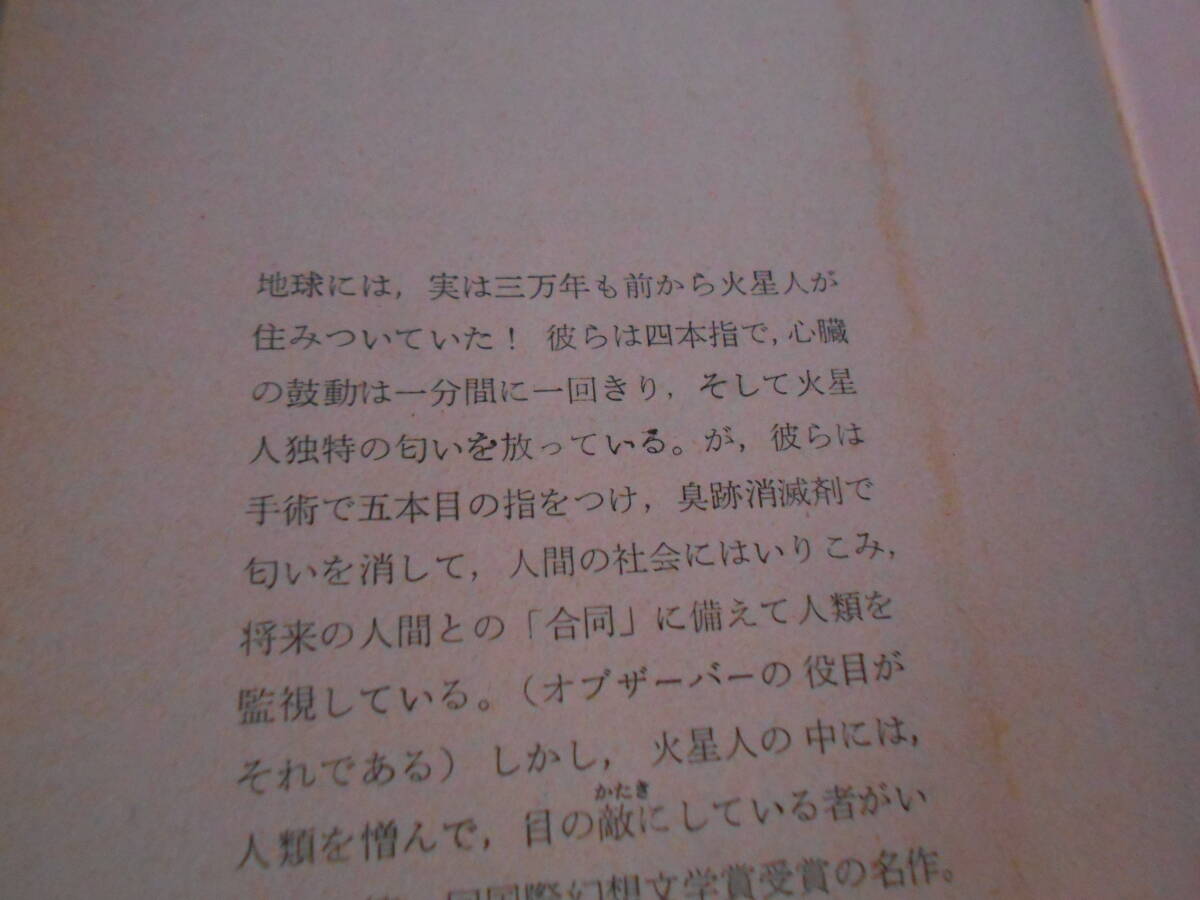 地球には，実は三万年も前から火星人が
住みついていた！ 彼らは四本指で，心臓
の鼓動は一分間に一回きり，そして火星
人独特の匂いを放っている。が，彼らは
手術で五本目の指をつけ，臭跡消滅剤で
匂いを消して，人間の社会にはいりこみ，
将来の人間との「合同」に備えて人類を
監視している。（オブザーバーの役目が
それである）しかし，火星人の中には，
かたき
人類を憎んで，目の敵にしている者がい
国際幻想文学賞受賞の名作。